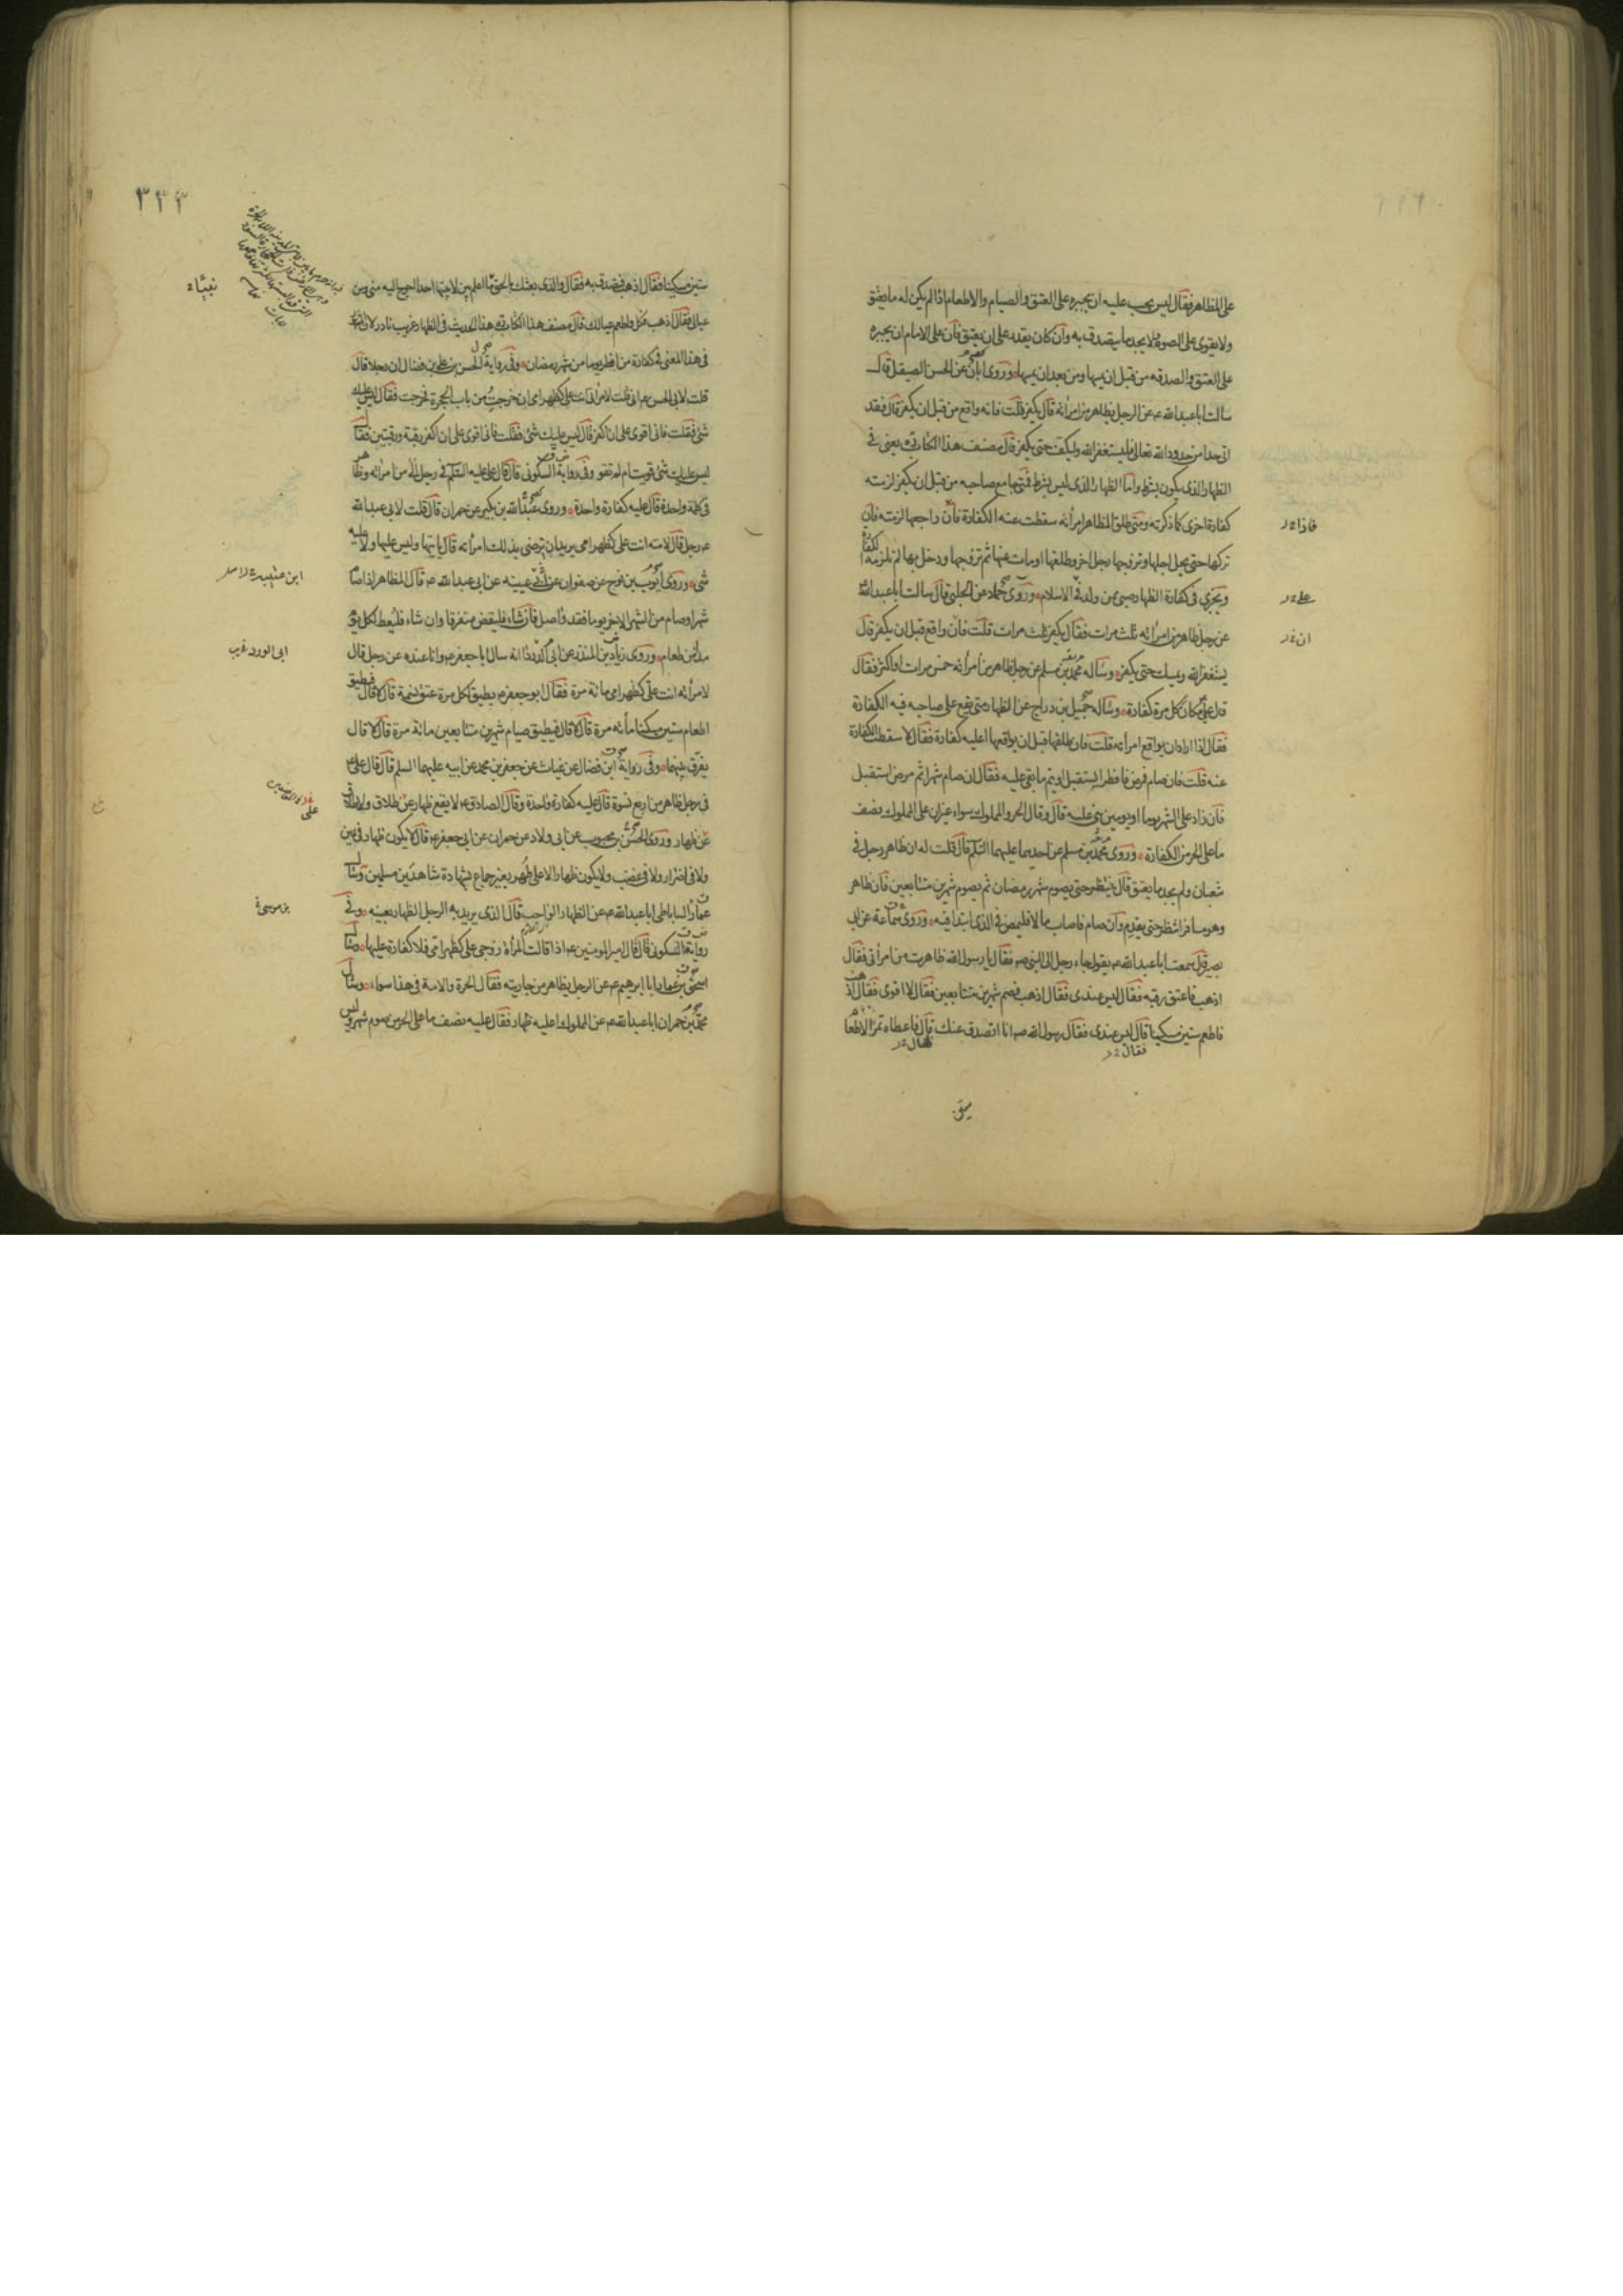 على المظاهر فقال ليس يجب عليه ان يجبره على العتق والصيام والاطعام اذا لم يكن له ما يعتق
ولا يقوى على الصوم ولا يجد ما يتصدق به وان كان يقدر على ان يعتق فان على الامام ان يجبره
على العتق والصدقه من قبل ان يمسها ومن بعد ان يمسها وروى ابان عن الحسن الصيقل قال
سالت ابا عبد الله ع عن الرجل يظاهر من امرأته قال يكفر قلت فانه واقع من قبل ان يكفر قال فقد
اتى حدا من حدود الله تعالى فليستغفر الله وليكف حتى يكفر قال مصنف هذا الكتاب ره يعنى فى
الظهار الذى يكون بشرط واما الظهار الذى ليس بشرط فمتى جامع صاحبه من قبل ان يكفر لزمته
كفارة اخرى كما ذكرته ومتى طلق المظاهر امرأته سقطت عنه الكفارة فان راجعها لزمته فان
فاذا
تركها حتى يحل اجلها وتزوجها رجل اخر وطلقها او مات عنها ثم تزوجها ودخل بها لم تلزمه الكفارة
ويجزى فى كفارة الظهار صبى ممن ولد فى الاسلام وروى حماد عن الحلبى قال سالت ابا عبد الله ع
عن رجل ظاهر من امرأته ثلث مرات فقال يكفر ثلث مرات قلت فان واقع قبل ان يكفر قال
ان
يستغفر الله ويمسك حتى يكفر وساله محمد بن مسلم عن رجل ظاهر من امرأته خمس مرات او اكثر فقال
قال على ع مكان كل مرة كفارة وساله جميل بن دراج عن الظهار متى يقع على صاحبه فيه الكفارة
فقال اذا اراد ان يواقع امرأته قلت فان طلقها قبل ان يواقعها اعليه كفارة فقال لا سقطت الكفارة
عنه قلت فان صام فمرض فافطر ايستقبل او يتم ما بقى عليه فقال ان صام شهرا ثم مرض استقبل
فان زاد على الشهر يوما او يومين بنى عليه قال وقال الحر والمملوك سواء غير ان على المملوك نصف
ما على الحر من الكفارة وروى محمد بن مسلم عن احدهما عليهما السلم قال قلت له ان ظاهر رجل فى
شعبان ولم يجد ما يعتق قال ينتظر حتى يصوم شهر رمضان ثم يصوم شهرين متتابعين فان ظاهر
وهو مسافر انتظر حتى يقدم وان صام فاصاب مالا فليمض فى الذى ابتدا فيه وروى سماعة عن ابى
بصير قال سمعت ابا عبد الله ع يقول جاء رجل الى النبى ص فقال يا رسول الله ظاهرت من امرأتى فقال
اذهب فاعتق رقبه فقال ليس عندى فقال اذهب فصم شهرين متتابعين فقال لا اقوى فقال اذهب
فاطعم ستين مسكينا قال ليس عندى فقال رسول الله ص انا اتصدق عنك قال فاعطاه تمرا لاطعام
فقال
فقال
ستين
٣٣٣
ستين مسكينا فقال اذهب فتصدق به فقال والذى بعثك بالحق ما اعلم بين لابتيها احدا احوج اليه منى ومن
عيالى فقال اذهب فكل واطعم عيالك قال مصنف هذا الكتاب ره هذا الحديث فى الظهار غريب نادر لان المشهور
فى هذا المعنى فى كفارة من افطر يوما من شهر رمضان وفى رواية الحسن بن على بن فضال ان رجلا قال
قلت لابى الحسن ع انى قلت لامرأتى انت على كظهر امى ان خرجت من باب الحجرة فخرجت فقال ليس عليك
شئ فقلت فانى اقوى على ان اكفر قال ليس عليك شئ فقلت فانى اقوى على ان اكفر رقبة ورقبتين فقال
ليس عليك شئ قويت ام لم تقو وفى رواية السكونى قال قال على عليه السلم فى رجل الى من امرأته وظاهر
فى كلمة واحدة قال عليه كفارة واحدة وروى عبد الله بن بكير عن حمران قال قلت لابى عبد الله
ع رجل قال لامته انت على كظهر امى يريد ان يرضى بذلك امرأته قال ياتيها وليس عليها ولا عليه
شئ وروى ايوب بن نوح عن صفوان عن ابى عيينه عن ابى عبد الله ع قال المظاهر اذا صام
شهرا وصام من الشهر الاخر يوما فقد واصل فان شاء فليقض متفرقا وان شاء فليعط لكل يوم
مدا من طعام وروى زياد بن المنذر عن ابى الورد انه سال ابا جعفر ع وانا عنده عن رجل قال
ابى الورد
لامرأته انت على كظهر امى مائة مرة فقال ابو جعفر ع يطيق لكل مرة عتق نسمة قال لا قال فيطيق
اطعام ستين مسكينا مأئه مرة قال لا قال فيطيق صيام شهرين متتابعين مائة مرة قال لا قال
يفرق بينهما وفى رواية ابن فضال عن غياث عن جعفر بن محمد عن ابيه عليهما السلم قال قال على ع
فى رجل ظاهر من اربع نسوة قال عليه كفارة واحدة وقال الصادق ع لا يقع ظهار عن طلاق ولا طلاق
عن ظهار وروى الحسن بن محبوب عن ابى ولاد عن حمران عن ابى جعفر ع قال لا يكون ظهار فى يمين
ولا فى اضرار ولا فى غضب ولا يكون ظهار الا على طهر بغير جماع بشهادة شاهدين مسلمين وسال
عمار الساباطى ابا عبد الله ع عن الظهار الواجب قال الذى يريد به الرجل الظهار بعينه وفى
بن موسى
رواية السكونى قال قال امير المومنين ع اذا قالت المرأة زوجى على كظهر امى فلا كفارة عليها وسال
اسحق بن عمار ابا ابرهيم ع عن الرجل يظاهر من جاريته فقال الحرة والامة فى هذا سواء وسال
محمد بن حمران ابا عبد الله ع عن المملوك اعليه ظهار فقال عليه نصف ما على الحر من صوم شهر وليس